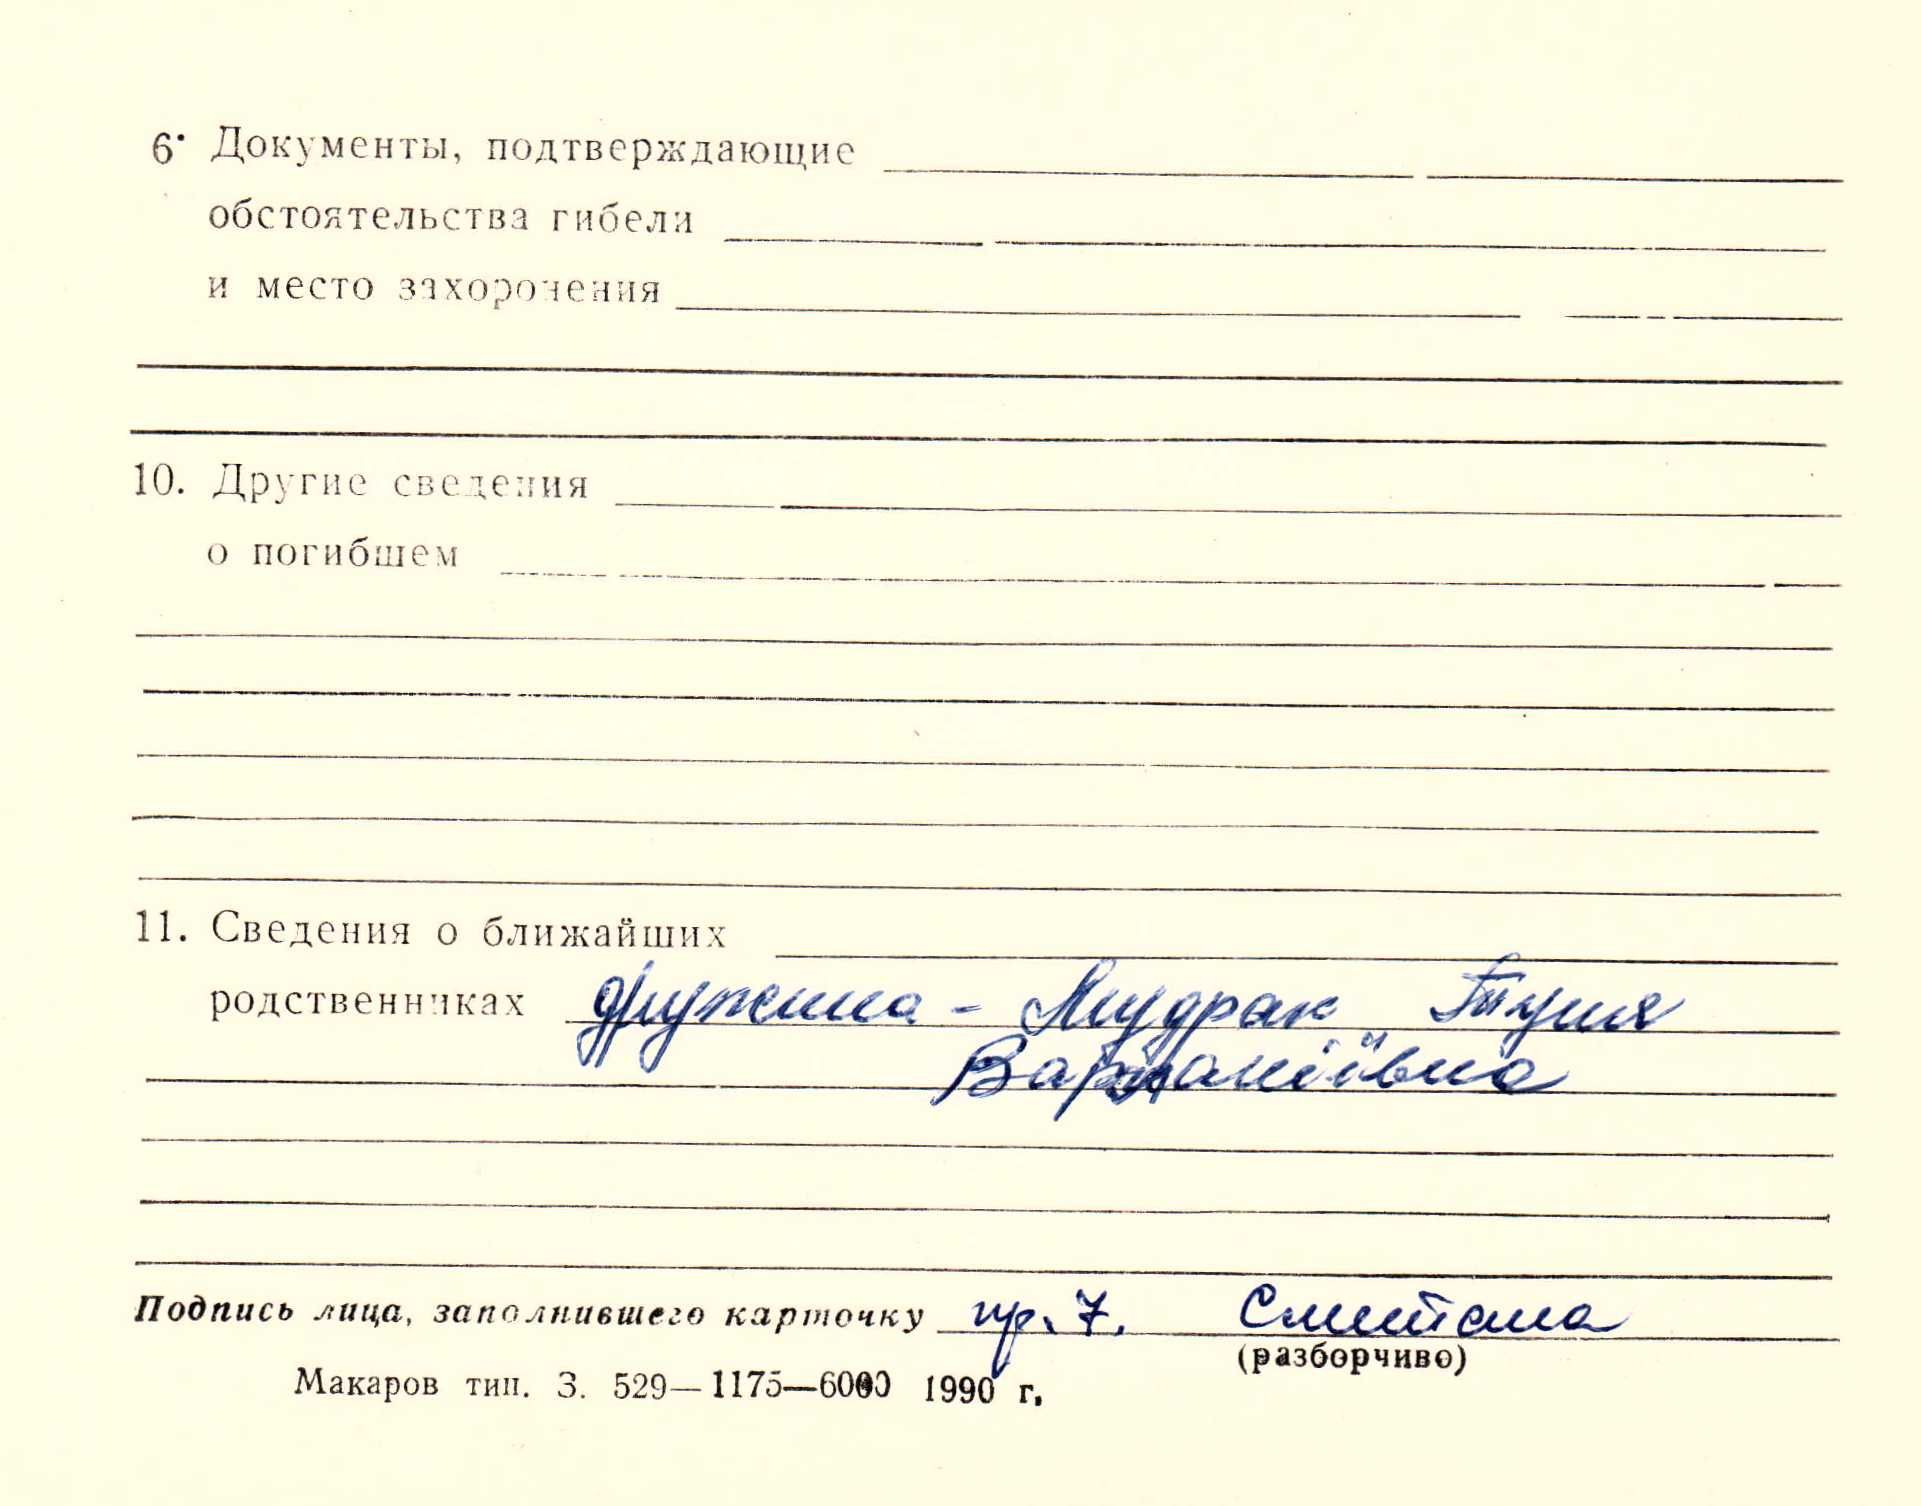 6. Документы, подтверждающие
обстоятельства гибели
и место захоронения
10. Другие сведения
о погибшем
11. Сведения о ближайших
родственниках дружина - Мудрак
Подпись лица, заполнившего карточку гр. 7. Сметана
(разборчиво)
Макаров тип. З. 529—1175—6000 1990 г.